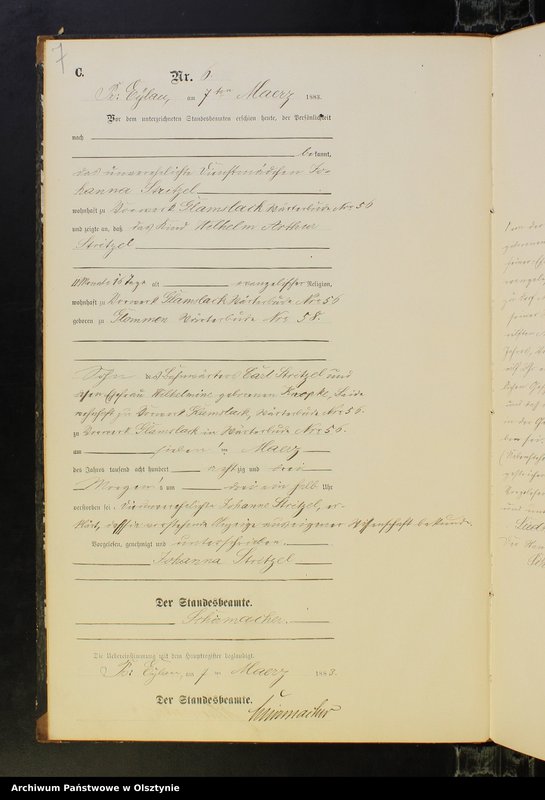 7
C.
Nr. 6
Pr: Eylau, am 7ten Maerz 1883.
Vor dem unterzeichneten Standesbeamten erschien heute, der Persönlichkeit
nach
bekannt,
das unverehelichte Dienstmädchen Jo-
hanna Stritzel
wohnhaft zu Vorwerk Glamslack Wärterbude Nro 56
und zeigte an, daß das Kind Wilhelm Arthur
Stritzel
11 Monate 16 Tage alt evangelischer Religion,
wohnhaft zu Vorwerk Glamslack Wärterbude Nro 56
geboren zu Glommen Wärterbude Nro 58.
Sohn des Bahnwärters Carl Stritzel und
Ehefrau Wilhelmine geborenen beide
wohnhaft zu Vorwerk Glamslack, Wärterbude Nro 56.
zu Vorwerk Glamslack in Wärterbude Nro 56.
am sieben ten Maerz
des Jahres tausend acht hundert achtzig und drei
Morgens um drei ein halb Uhr
verstorben sei. Die unverehelichte Johanna Stritzel, er-
klärt, daß sie vorstehende Anzeige aus eigener Wissenschaft bekunde.
Vorgelesen, genehmigt und unterschrieben.
Johanna Stritzel
Der Standesbeamte.
Schumacher.
Die Uebereinstimmung mit dem Hauptregister beglaubigt.
Pr: Eylau, am 7 ten Maerz 1883.
Der Standesbeamte.
Schumacher
Archiwum Państwowe w Olsztynie